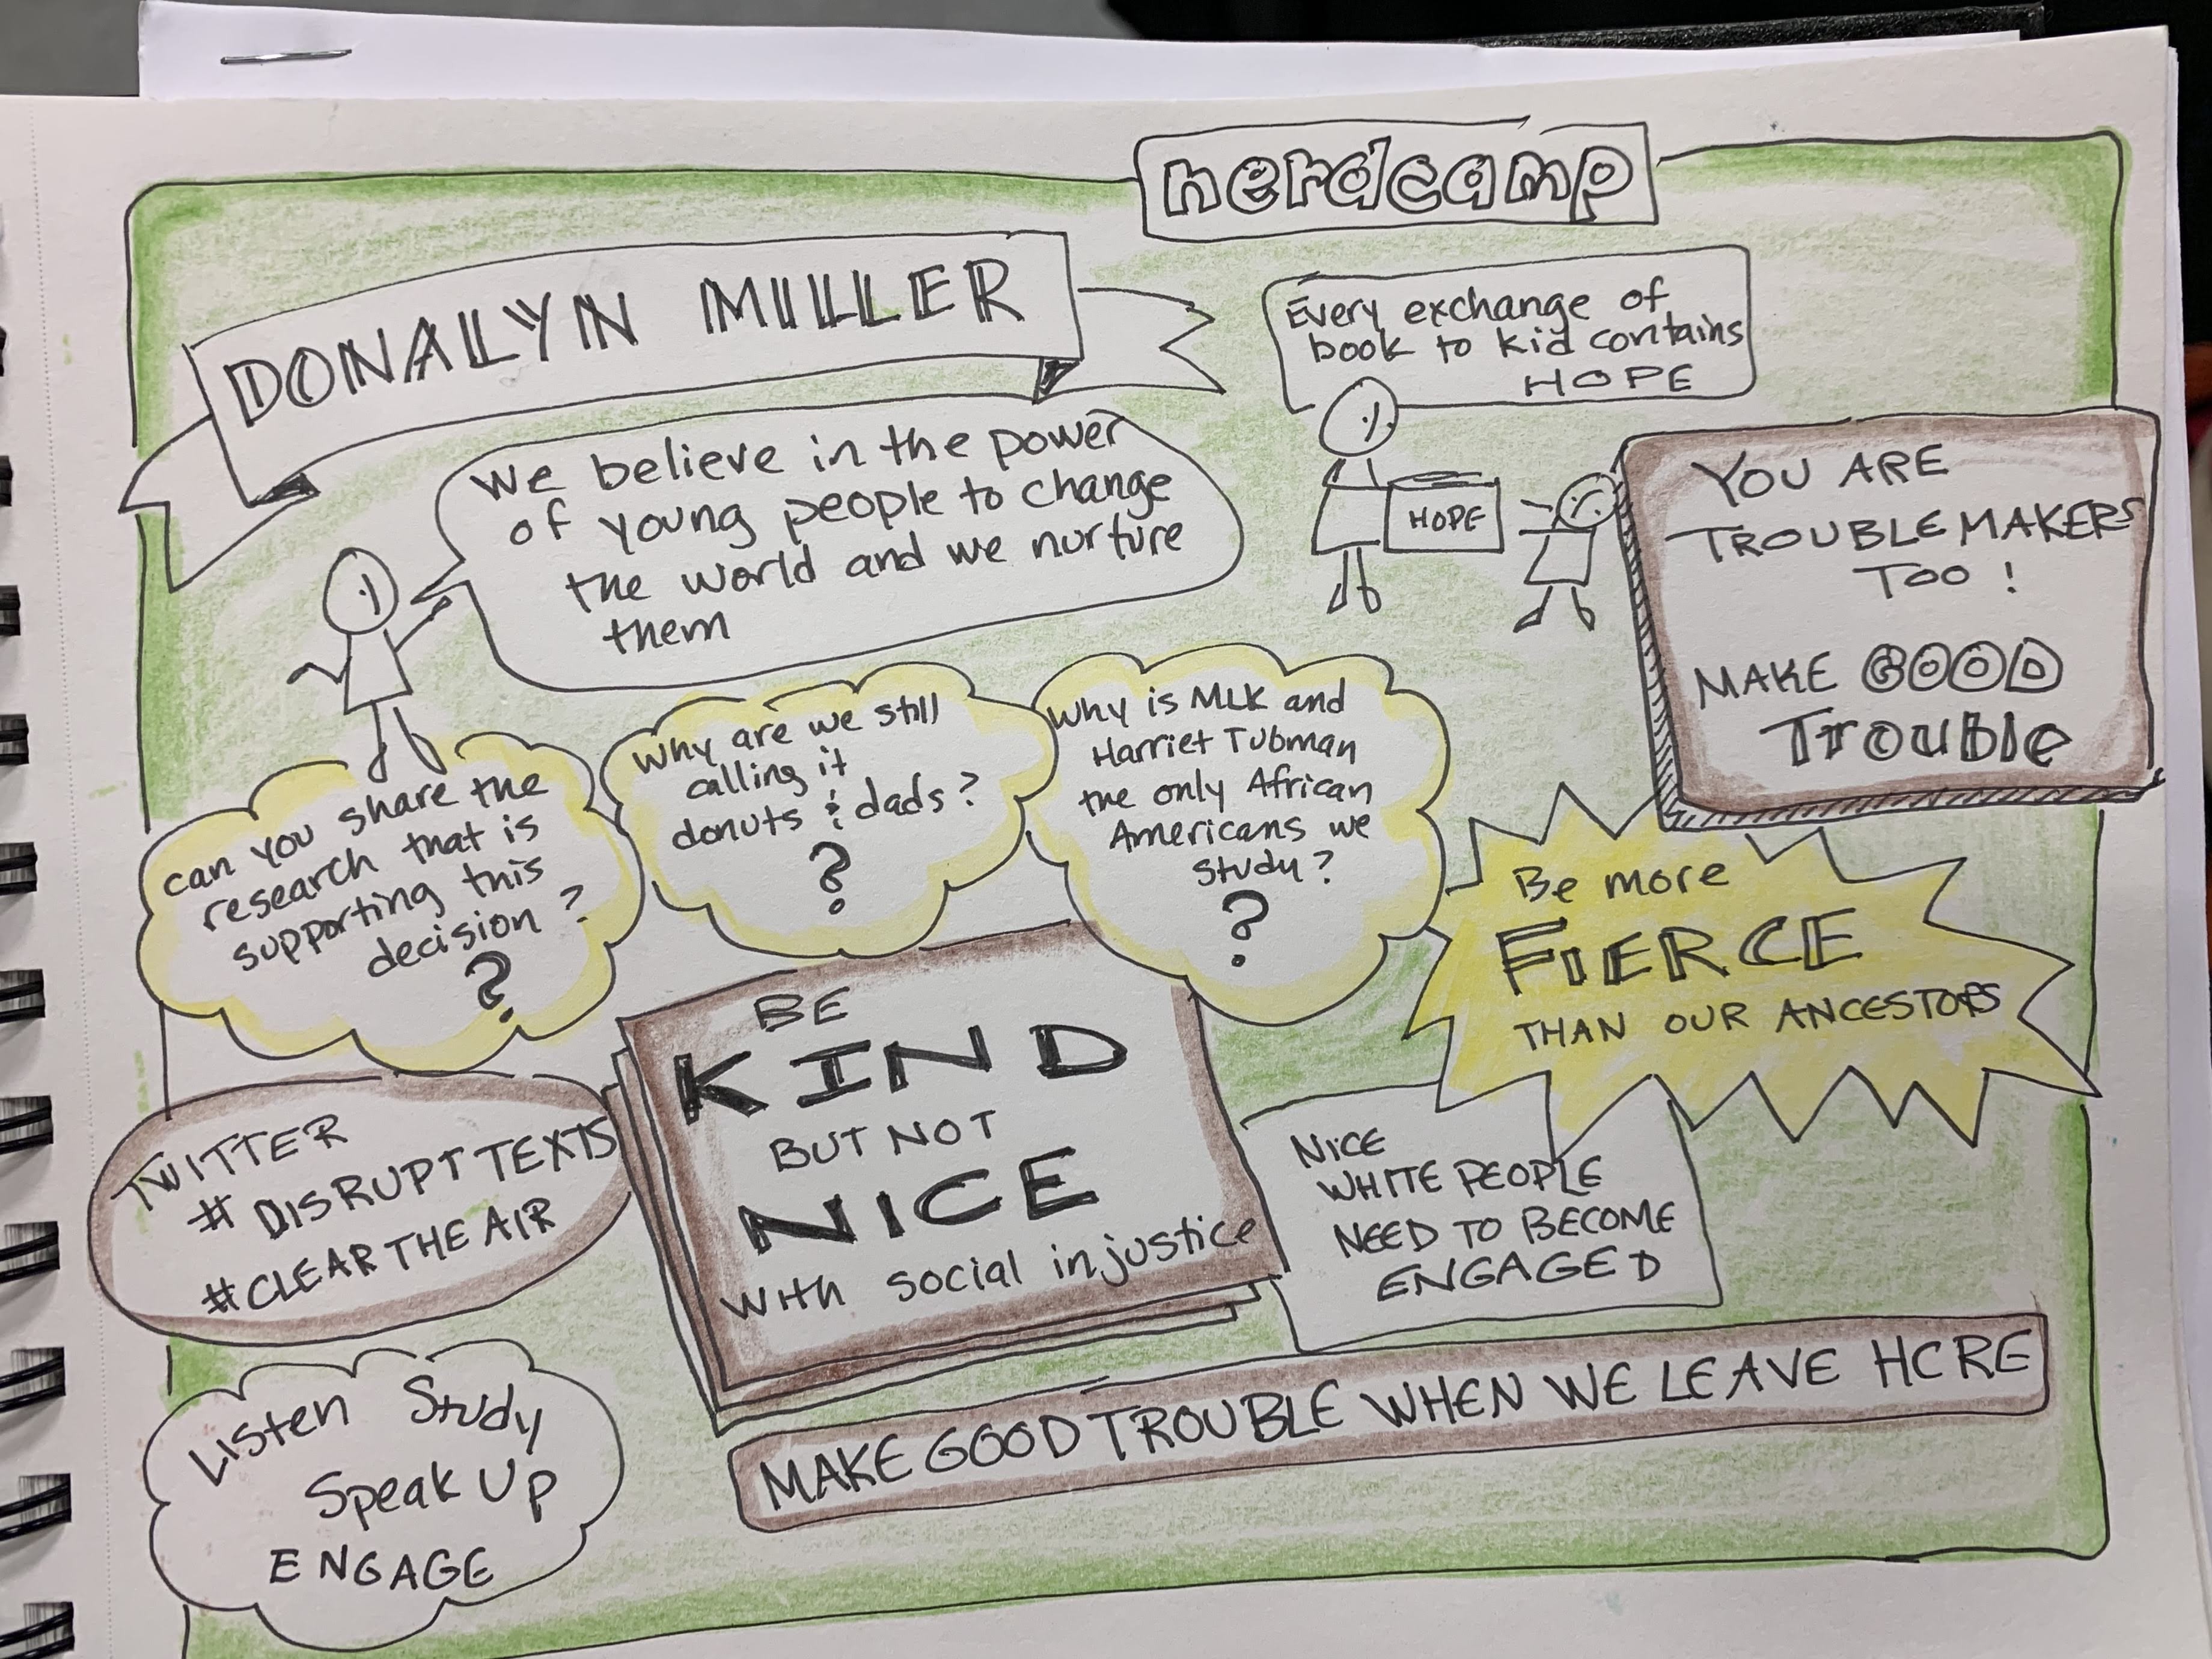 nerdcamp
DONALYN MILLER
Every exchange of
book to kid contains
HOPE
HOPE
We believe in the power
of young people to change
the world and we nurture
them
YOU ARE
TROUBLEMAKERS
TOO!
MAKE GOOD
Trouble
can you share the
research that is
supporting this
decision?
?
Why are we still
calling it
donuts & dads?
?
Why is MLK and
Harriet Tubman
the only African
Americans we
study?
?
Be more
FIERCE
THAN OUR ANCESTORS
BE
KIND
BUT NOT
NICE
with social injustice
TWITTER
# DISRUPTTEXTS
#CLEARTHEAIR
NICE
WHITE PEOPLE
NEED TO BECOME
ENGAGED
MAKE GOOD TROUBLE WHEN WE LEAVE HERE
Listen Study
Speak Up
ENGAGE